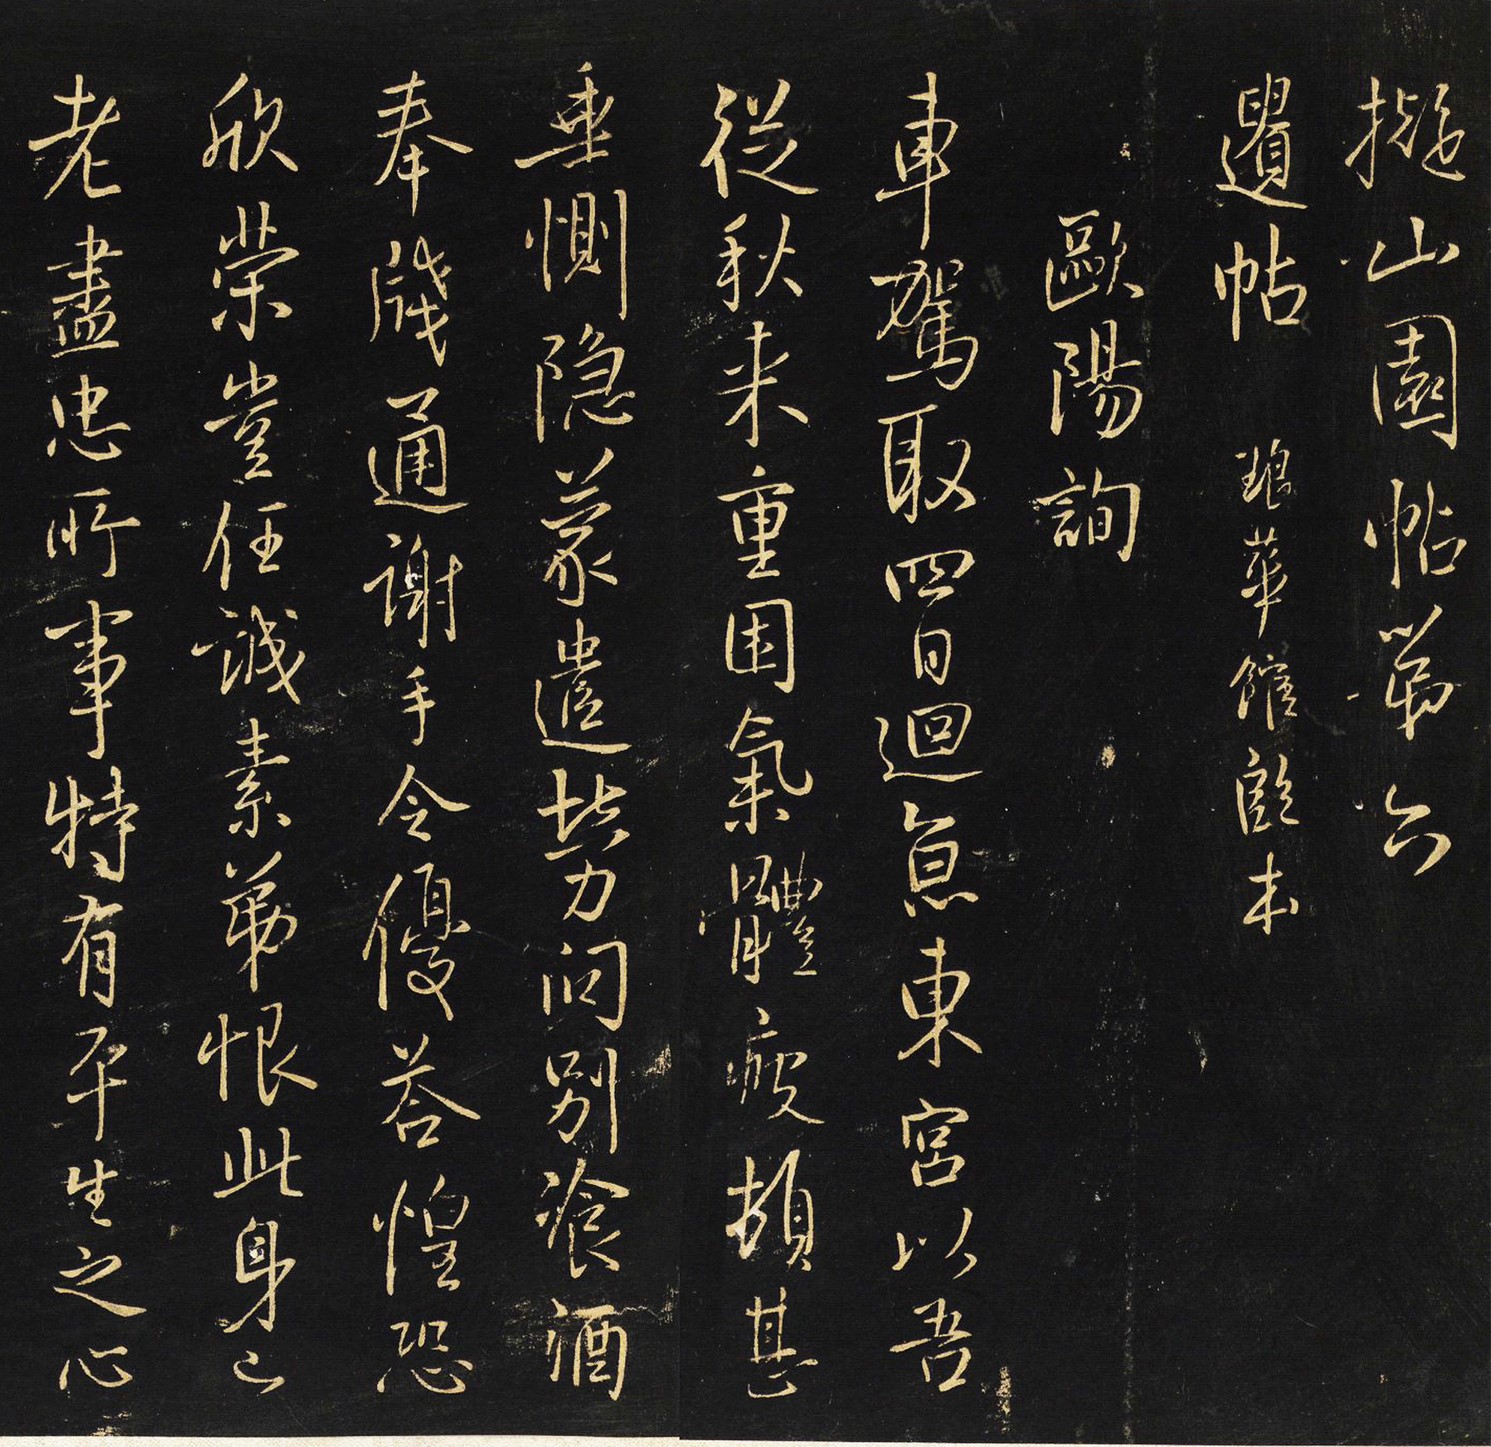 擬山園帖第六
選帖 琅華館藏本
歐陽詢
車駕取四日迴息東宮以吾
從秋来重困氣體疲頓甚
垂惻隐蒙遣勞问别飡酒
奉牋通謝手令優荅惶恐
欣荣豈任誠素第恨此身已
老盡忠所事特有平生之心